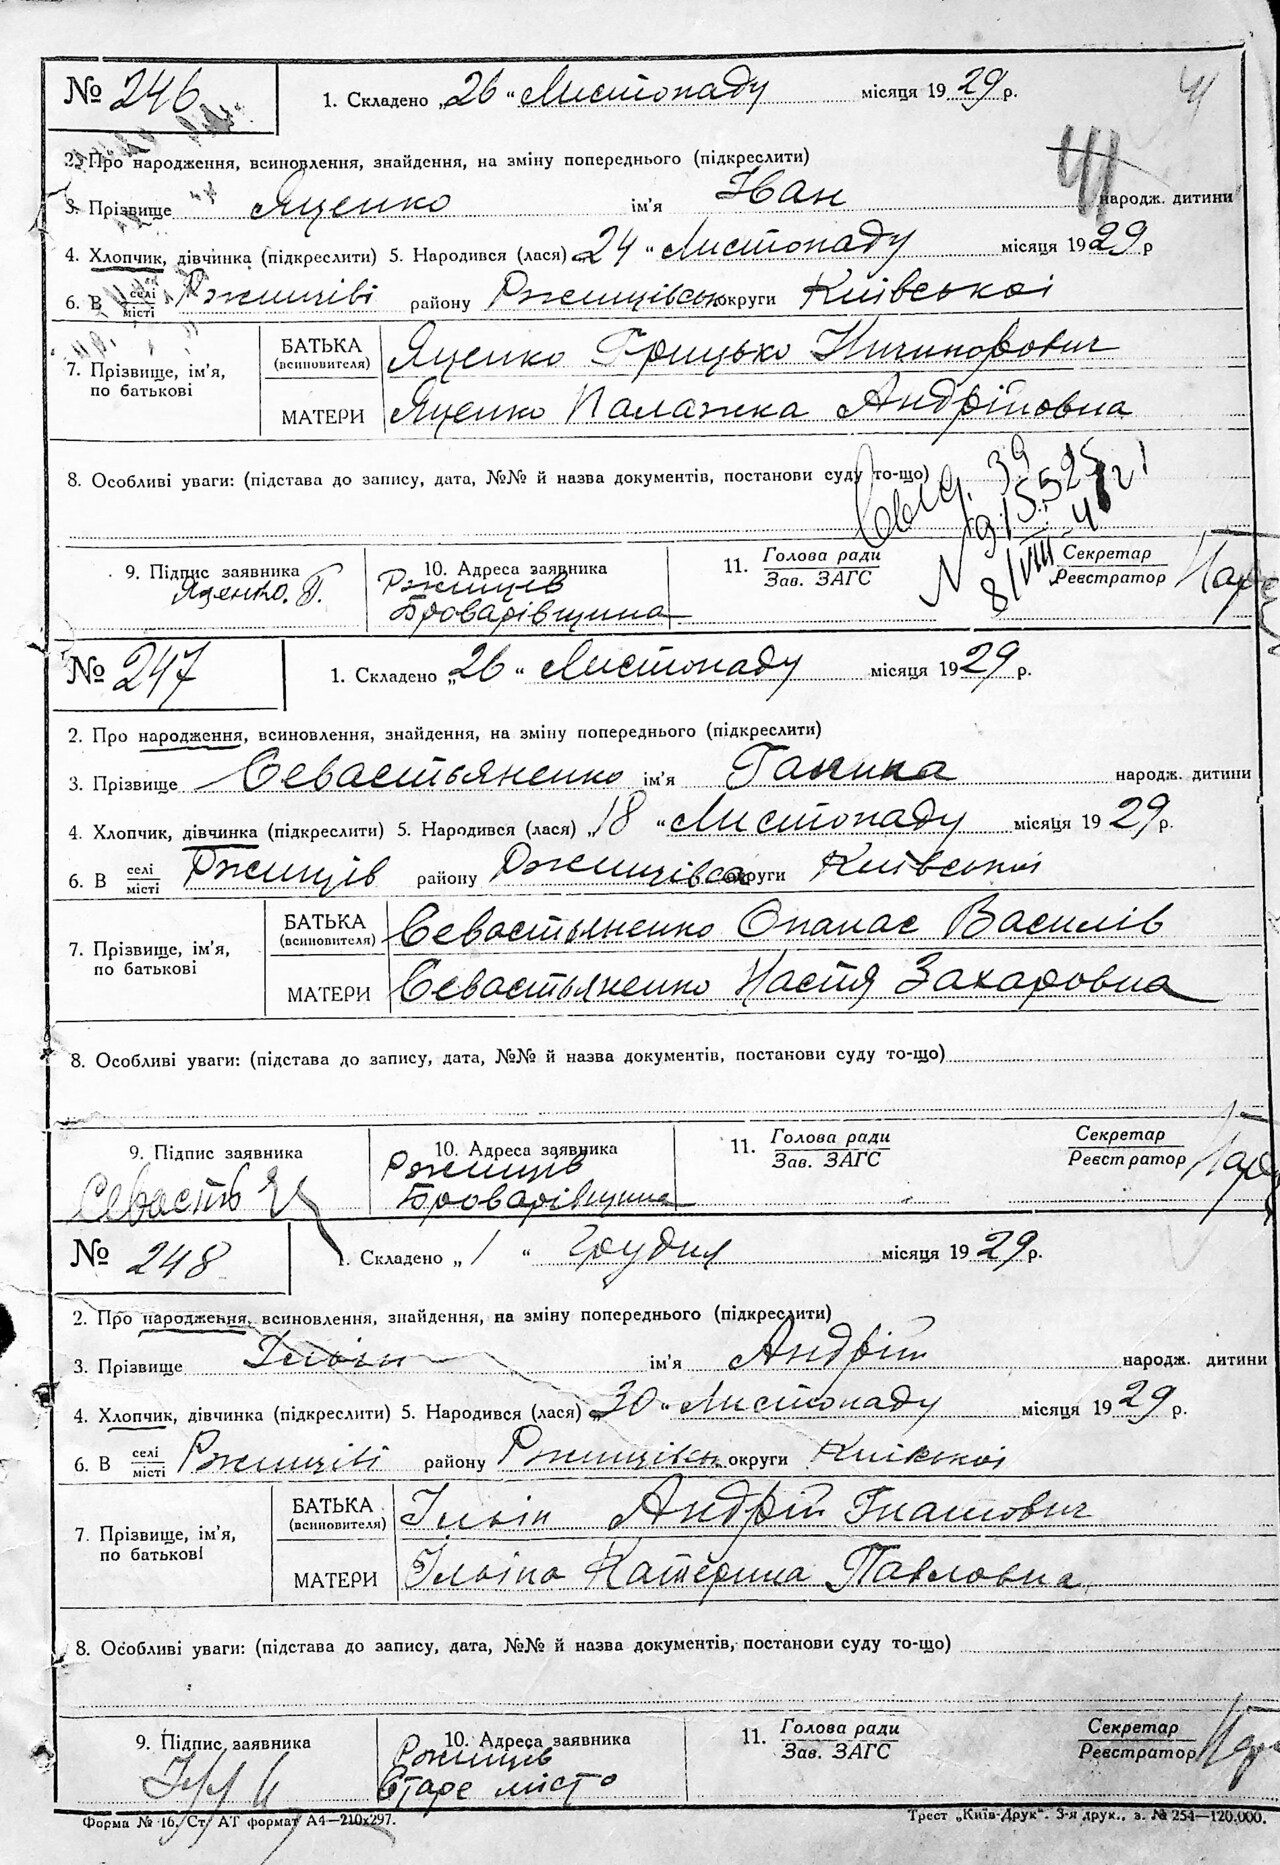 № 246 1. Складено „26“ Листопаду місяця 1929 р.
41
2. Про народження, всиновлення, знайдення, на зміну попереднього (підкреслити)
3. Прізвище Яценко ім'я Іван народж. дитини
4. Хлопчик, дівчинка (підкреслити) 5. Народився (лася) 24 “ Листопаду місяця 1929 р
6. В селі місті Ржищіві району Ржищівськ округи Київської
7. Прізвище, ім'я, по батькові
БАТЬКА (всиновителя) Яценко Грицько Ничипорович
МАТЕРИ Яценко Палажка Андріївна
8. Особливі уваги: (підстава до запису, дата, №№ й назва документів, постанови суду то-що)
9. Підпис заявника 10. Адреса заявника 11. Голова ради Зав. ЗАГС Секретар Реєстратор
Яценко. Г. Ржищев
Броварівщина
№ 247 1. Складено „26“ Листопаду місяця 1929 р.
2. Про народження, всиновлення, знайдення, на зміну попереднього (підкреслити)
3. Прізвище Севастьяненко ім'я Ганна народж. дитини
4. Хлопчик, дівчинка (підкреслити) 5. Народився (лася) „18 “ Листопаду місяця 1929 р.
6. В селі місті Ржищів району округи Київської
7. Прізвище, ім'я, по батькові
БАТЬКА (всиновителя) Севастьяненко Опанас Василів
МАТЕРИ Севастьяненко Настя Захаровна
8. Особливі уваги: (підстава до запису, дата, №№ й назва документів, постанови суду то-що)
9. Підпис заявника 10. Адреса заявника 11. Голова ради Зав. ЗАГС Секретар Реєстратор
Севасть Ржищів
Броварівщина
№ 248 1. Складено „1“ Грудня місяця 1929 р.
2. Про народження, всиновлення, знайдення, на зміну попереднього (підкреслити)
3. Прізвище Ільін ім'я Андрій народж. дитини
4. Хлопчик, дівчинка (підкреслити) 5. Народився (лася) 30 “ Листопаду місяця 1929 р.
6. В селі місті Ржищіві району Ржищівськ округи Київської
7. Прізвище, ім'я, по батькові
БАТЬКА (всиновителя) Ільін Андрій Гнатович
МАТЕРИ Ільіна Катерина Павловна
8. Особливі уваги: (підстава до запису, дата, №№ й назва документів, постанови суду то-що)
9. Підпис заявника 10. Адреса заявника 11. Голова ради Зав. ЗАГС Секретар Реєстратор
Ржищев
Старе місто
Форма № 16. Ст. АТ формат А4—210х297. Трест „Київ-Друк“. 3-я друк., з. № 254—120.000.